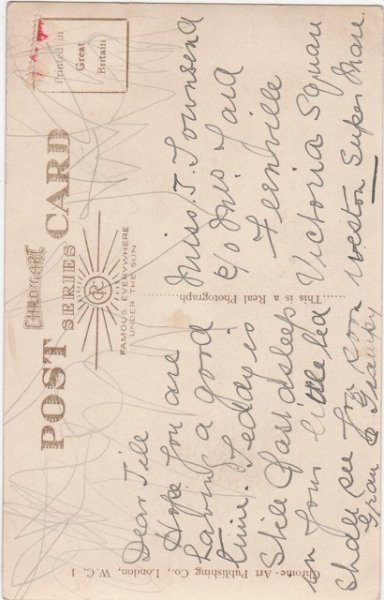 CHROTOART
POST CARD
SERIES
CR
FAMOUS EVERYWHERE
UNDER THE SUN
Printed in
Great
Britain
This is a Real Photograph
Chrome-Art Publishing Co., London, W.C. 1
Dear Jill
Hope you are
having a good
time. Teddy is
still fast asleep
in your little bed
shall see you soon
Gran & Grampy
Miss J. Townsend
c/o Mrs
Fernville
Victoria Square
Weston Super Mare